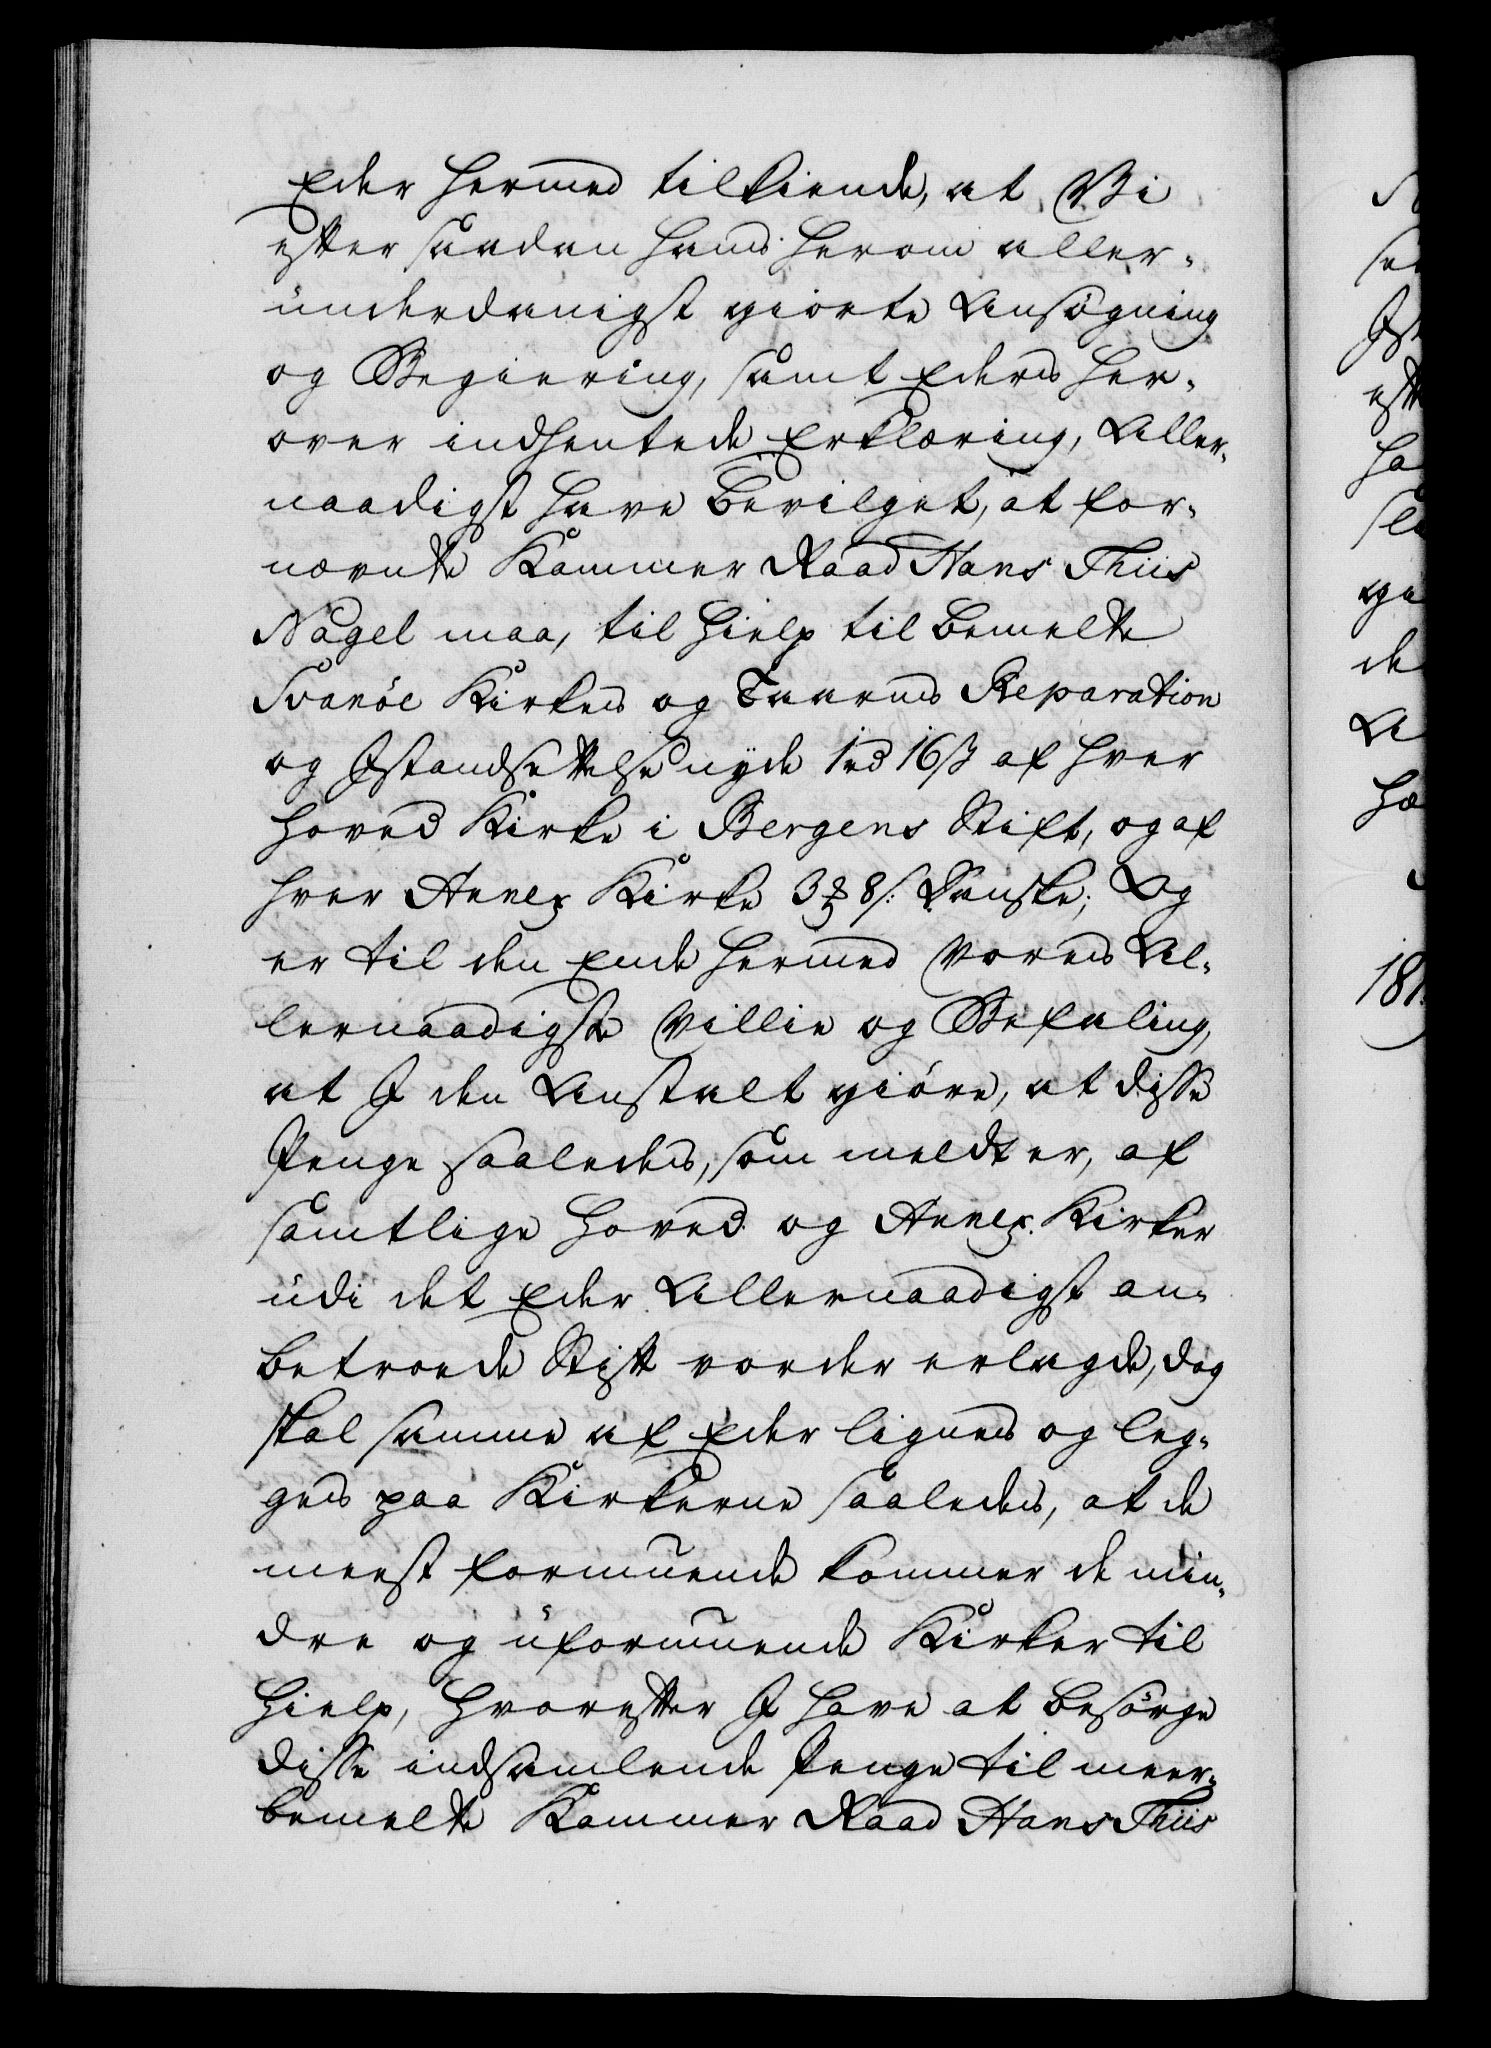 Eder hermed tilkiende, at Vi
efter saadan hans herom aller-
underdanigst giorte Ansøgning
og Begiering, samt Eders her-
over indhentede Erklæring, Aller-
naadigst have bevilget, at for-
nævnte Kammer Raad Hans Thiis
Nagel maa, til Hielp til bemelte
Svanöe Kirkes og Taarns Reparation
og Istandsettelse nyde 1 rd 16 β af hver
Hoved Kirke i Bergens Stift, og af
hver Annex Kirke 3 ℳ 8 s: Danske; Og
er til den Ende hermed Vores Al-
lernaadigste Villie og Befaling,
at I den Anstalt giöre, at disse
Penge saaledes, som meldt er, af
samtlige Hoved og Annex Kirker
udi det Eder Allernaadigst an-
betroede Stift vorder erlagde, dog
skal samme af Eder lignes og leg-
ges paa Kirkerne saaledes, at de
meest formuende kommer de min-
dre og uformuende Kirker til
Hielp, hvorefter I have at besörge
disse indsamlende Penge til meer-
bemelte Kammer Raad Hans Thiis
181.